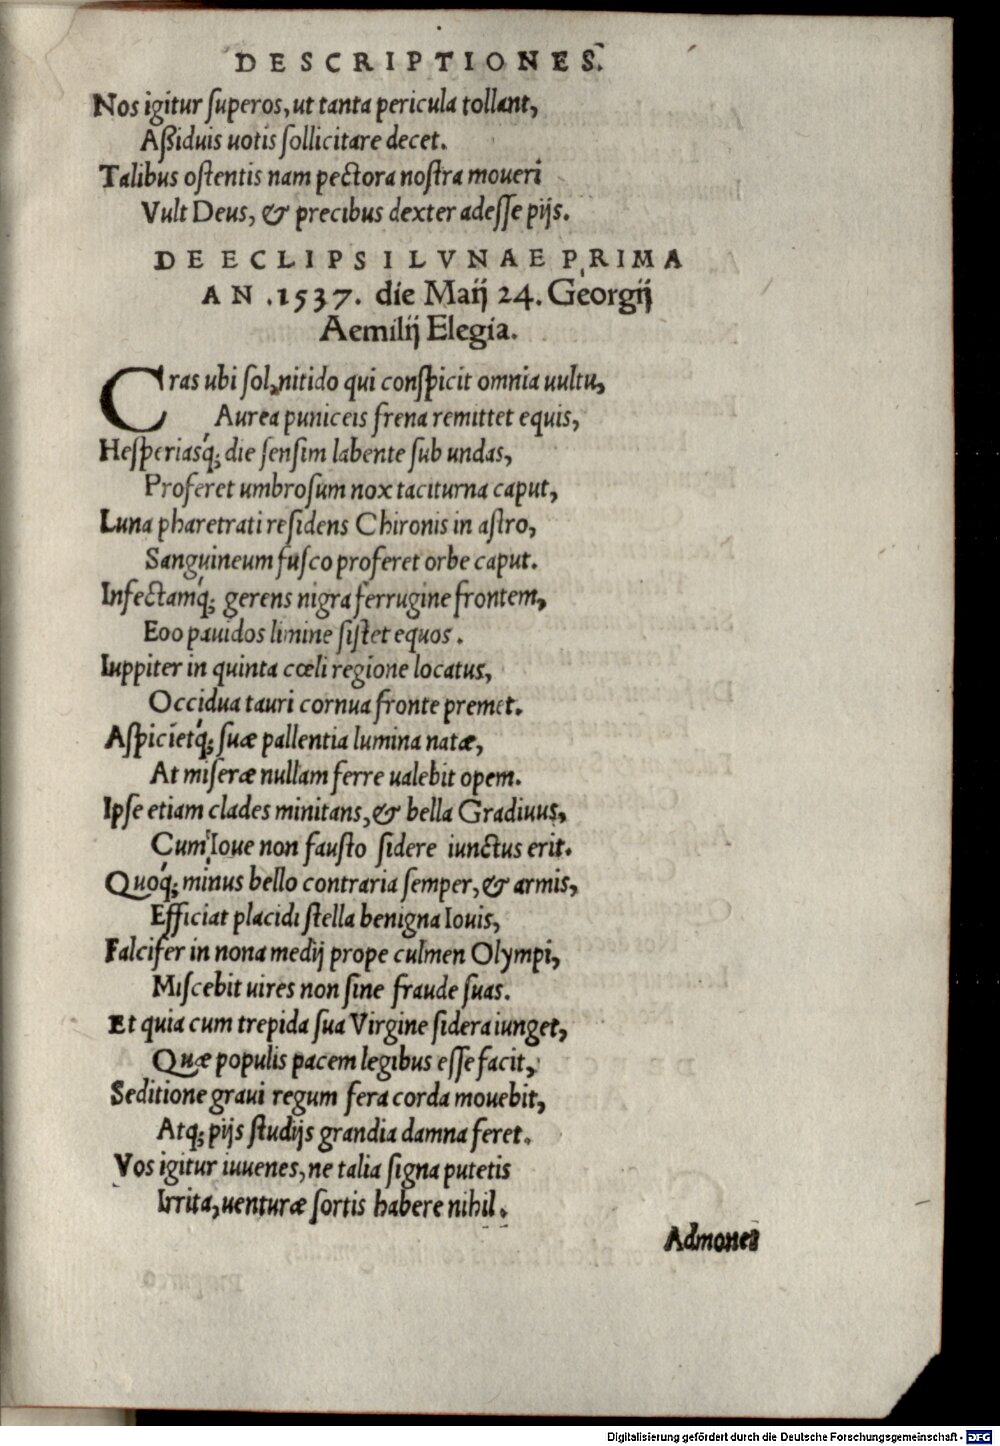 DESCRIPTIONES.
Nos igitur ſuperos, ut tanta pericula tollant,
Aßiduis uotis ſollicitare decet.
Talibus oſtentis nam pectora noſtra moueri
Vult Deus, & precibus dexter adeſſe pijs.
DE ECLIPSI LVNAE PRIMA
AN .1537. die Maij 24. Georgij
Aemilij Elegia.
Cras ubi ſol, nitido qui conſpicit omnia uultu,
Aurea puniceis frena remittet equis,
Heſperiasq́; die ſenſim labente ſub undas,
Proferet umbroſum nox taciturna caput,
Luna pharetrati reſidens Chironis in aſtro,
Sanguineum fuſco proferet orbe caput.
Infectamq́; gerens nigra ferrugine frontem,
Eoo pauidos limine ſiſtet equos.
Iuppiter in quinta cœli regione locatus,
Occidua tauri cornua fronte premet.
Aſpicietq́; ſuæ pallentia lumina natæ,
At miſeræ nullam ferre ualebit opem.
Ipſe etiam clades minitans, & bella Gradiuus,
Cum Ioue non fauſto ſidere iunctus erit.
Quoq́; minus bello contraria ſemper, & armis,
Efficiat placidi ſtella benigna Iouis,
Falcifer in nona medij prope culmen Olympi,
Miſcebit uires non ſine fraude ſuas.
Et quia cum trepida ſua Virgine ſidera iunget,
Quæ populis pacem legibus eſſe facit,
Seditione graui regum fera corda mouebit,
Atq; pijs ſtudijs grandia damna feret.
Vos igitur iuuenes, ne talia ſigna putetis
Irrita, uenturæ ſortis habere nihil.
Admones
Digitalisierung gefördert durch die Deutsche Forschungsgemeinschaft - DFG